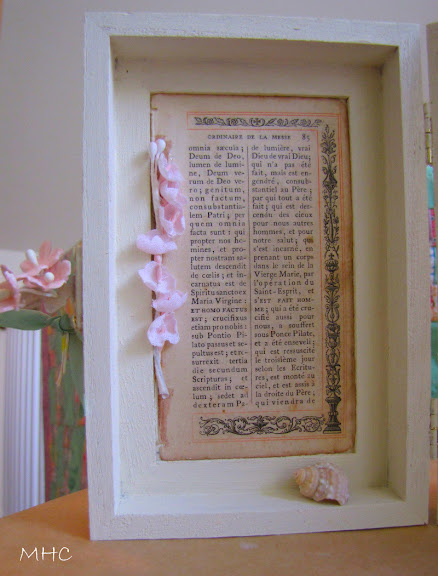 ORDINAIRE DE LA MESSE 85
omnia sæcula;
Deum de Deo,
lumen de lumi-
ne, Deum ve-
rum de Deo ve-
ro; genitum,
non factum,
consubstantia-
lem Patri; per
quem omnia
facta sunt: qui
propter nos ho-
mines, et pro-
pter nostram sa-
lutem descendit
de cœlis; et in-
carnatus est de
Spiritu sancto ex
Maria Virgine:
ET HOMO FACTUS
EST; crucifixus
etiam pro nobis:
sub Pontio Pi-
lato passus et se-
pultus est; et re-
surrexit tertia
die secundum
Scripturas; et
ascendit in cœ-
lum; sedet ad
dexteram Pa-
de lumière, vrai
Dieu de vrai Dieu;
qui n'a pas été
fait, mais est en-
gendré, consub-
stantiel au Père;
par qui tout a été
fait; qui est des-
cendu des cieux
pour nous autres
hommes, et pour
notre salut; qui
s'est incarné, en
prenant un corps
dans le sein de la
Vierge Marie, par
l'opération du
Saint-Esprit, et
S'EST FAIT HOM-
ME; qui a été cru-
cifié aussi pour
nous, a souffert
sous Ponce Pilate,
et a été enseveli;
qui est ressuscité
le troisième jour
selon les Ecritu-
res, est monté au
ciel, et est assis à
la droite du Père,
qui viendra de
MHC